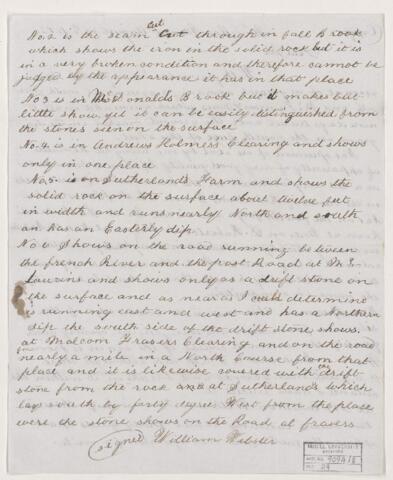 No. 2 is the seam Cut through in fall Brook
which shows the iron in the solid rock but it is
in a very broken condition and therefore cannot be
judged by the appearance it has in that place
No 3 is in McDonalds Brook but it makes but
little show yet it can be easily distinguished from
the stones seen on the surface
No. 4 is in Andrews Holmess Clearing and shows
only in one place
No. 5. is on Sutherlands Farm and shows the
solid rock on the surface about twelve feet
in width and runs nearly North and south
an has an Easterly dip
No 6 Shows on the road running between
the french River and the post Road at Mc
Laurins and shows only as a drift stone on
the surface and as near as I could determine
is running east and west and has a Northern
dip the south side of the drift stone shows.
at Malcom Frasers Clearing and on the road
nearly a mile in a North Course from that
place and it is likewise covered with the drift
stone from the rock at Sutherlands which
lays south by forty degree West from the place
were the stone shows on the Road at frasers
(signed William Webster